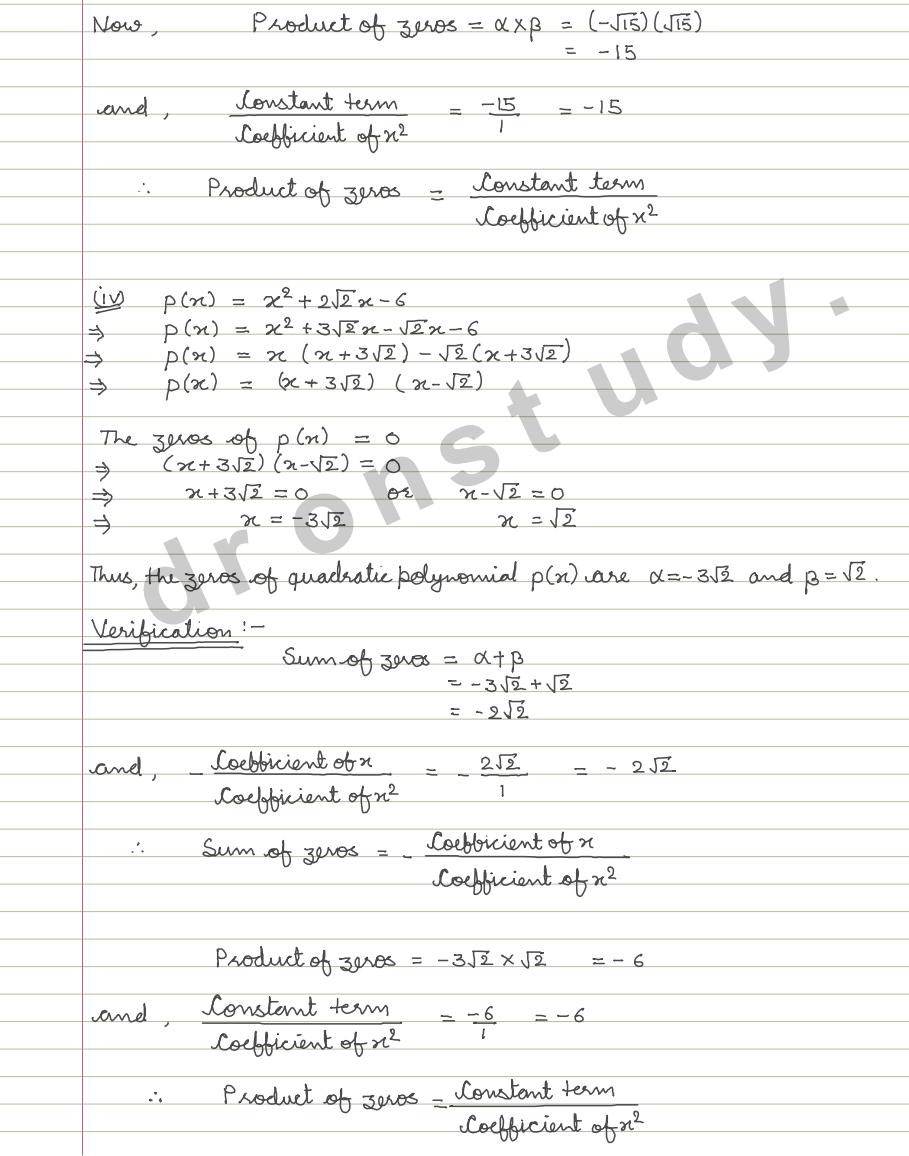 Now, Product of zeros = α×β = (-√15)(√15)
= -15
and, Constant term / Coefficient of x² = -15/1 = -15
∴ Product of zeros = Constant term / Coefficient of x²
(iv) p(x) = x² + 2√2x - 6
⇒ p(x) = x² + 3√2x - √2x - 6
⇒ p(x) = x (x + 3√2) - √2 (x + 3√2)
⇒ p(x) = (x + 3√2) (x - √2)
The zeros of p(x) = 0
⇒ (x + 3√2) (x - √2) = 0
⇒ x + 3√2 = 0 or x - √2 = 0
⇒ x = -3√2 x = √2
Thus, the zeros of quadratic polynomial p(x) are α = -3√2 and β = √2.
Verification :-
Sum of zeros = α + β
= -3√2 + √2
= -2√2
and, - Coefficient of x / Coefficient of x² = - 2√2/1 = - 2√2
∴ Sum of zeros = - Coefficient of x / Coefficient of x²
Product of zeros = -3√2 × √2 = -6
and, Constant term / Coefficient of x² = -6/1 = -6
∴ Product of zeros = Constant term / Coefficient of x²
dronstudy.